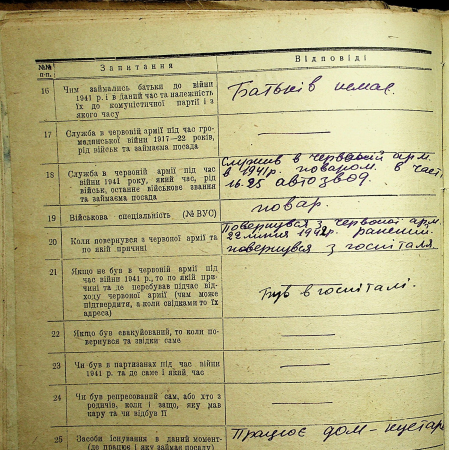 №№
п-п.
Запитання
Відповіді
16
Чим займались батьки до війни
1941 р. і в даний час та належність
їх до комуністичної партії і з
якого часу
Батьків немає.
17
Служба в червоній армії під час гро-
мадянської війни 1917—22 років,
рід військ та займаєма посада
18
Служба в червоній армії під час
війни 1941 року, який час, рід
військ, останнє військове звання
та займаєма посада
Служив в червоній арм.
в 1941 р. поваром в част.
16.25 автозвод.
19
Військова спеціальність (№ ВУС)
повар.
20
Коли повернувся з червоної армії та
по якій причині
Повернувся з червоної арм.
22 липня 1942 р. ранений
повернувся з госпіталя
21
Якщо не був в червоній армії під
час війни 1941 р., то по якій при-
чині та де перебував підчас від-
ходу червоної армії (чим може
підтвердити, а коли свідками то їх
адреса)
Був в госпіталі.
22
Якщо був евакуйований, то коли по-
вернувся та звідки саме
23
Чи був в партизанах під час війни
1941 р. та де саме і який час
24
Чи був репресований сам, або хто з
родичів, коли і защо, яку мав
кару та чи відбув її
25
Засоби існування в даний момент-
(де працює і яку займає посаду)
Працює дом-кустар